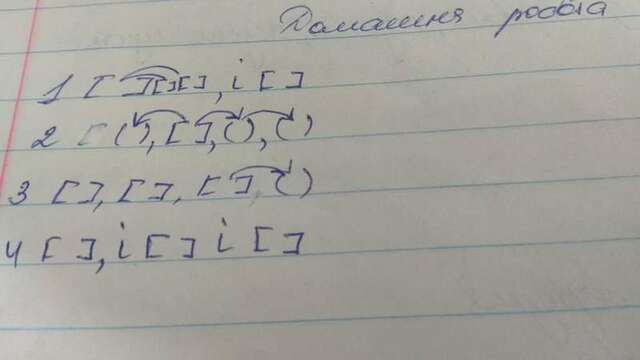 Домашня робота
1 [ ][ ][ ], і [ ]
2 [ ( ), [ ], ( ), ( )
3 [ ], [ ], [ ], ( )
4 [ ], і [ ] і [ ]